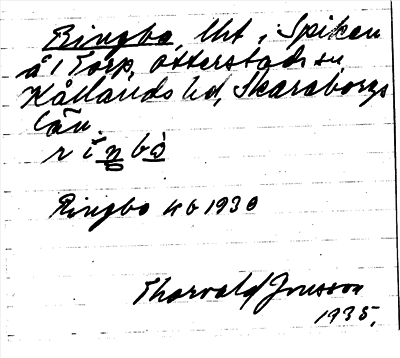 Ringbo, lht i Spiken
å 1 Torp, Otterstads sn
Kållands hd, Skaraborgs
län.
r i n b o
Ringbo 1930
Thorvald Jonsson
1935.